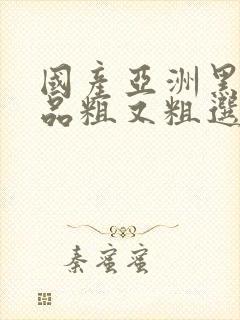 國產亞洲黑
品粗又粗選
秦蜜蜜